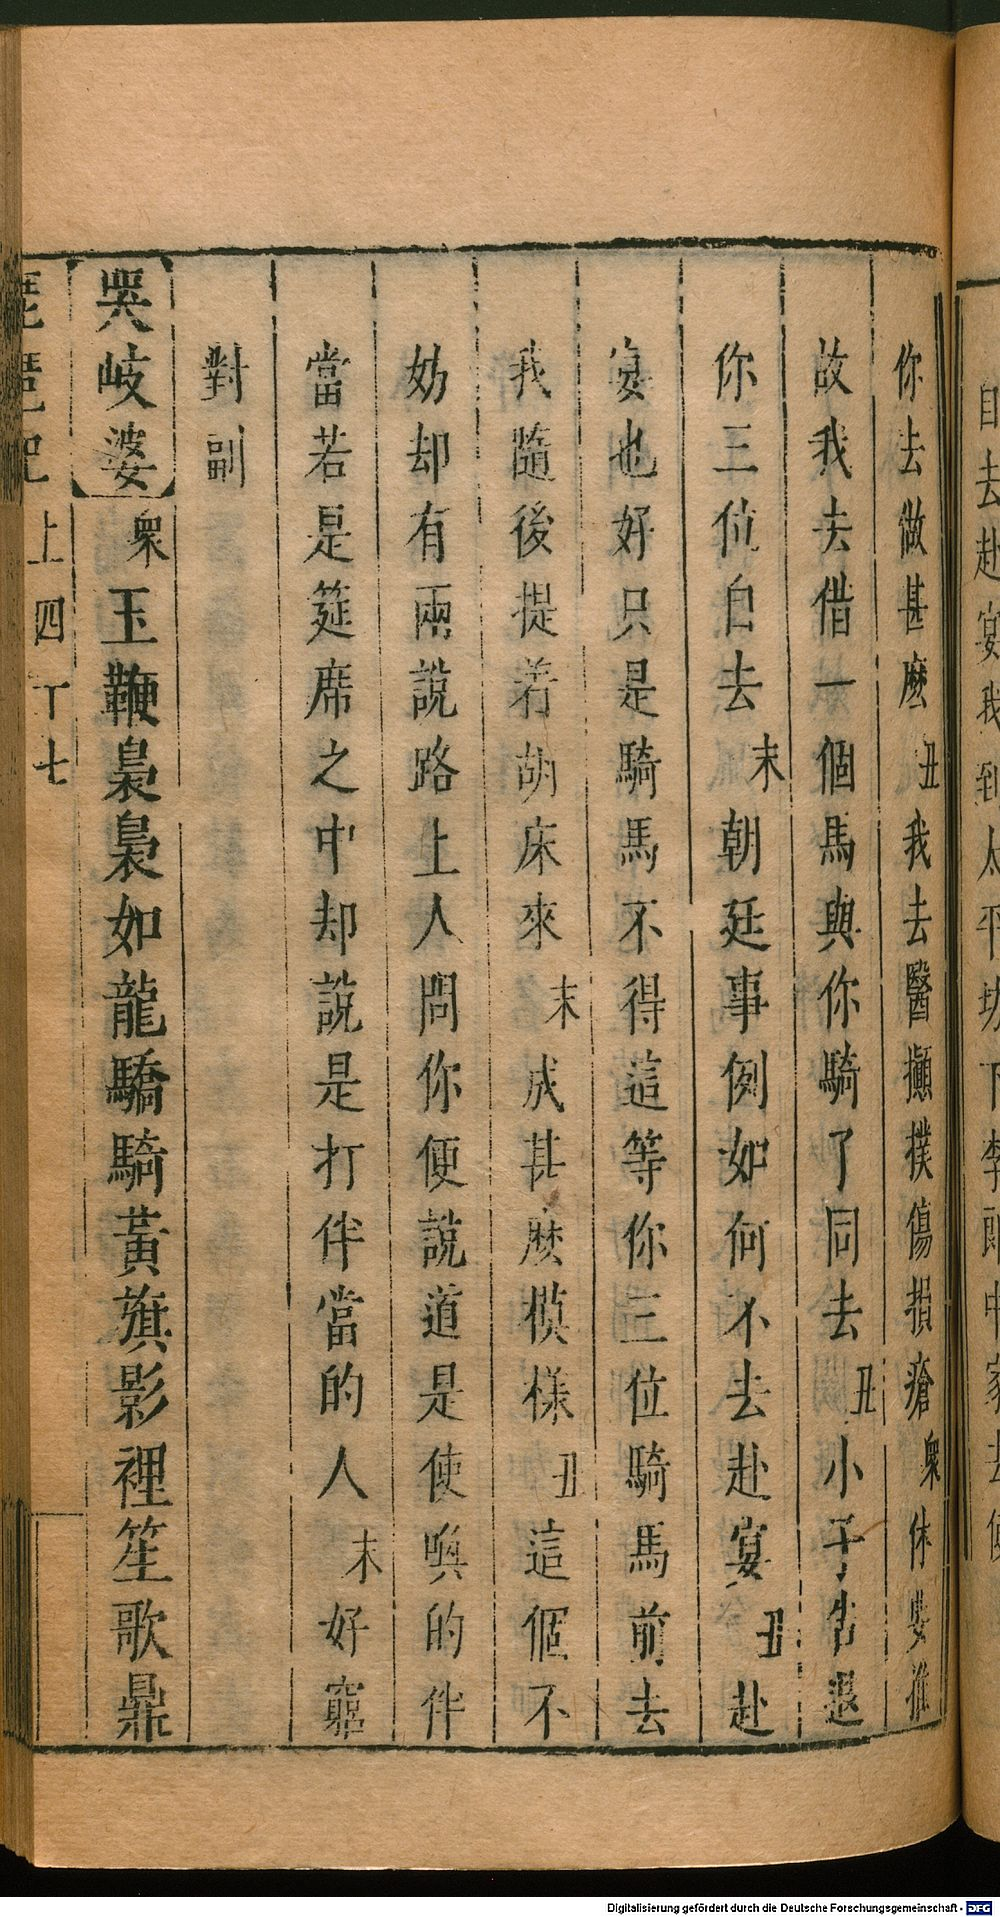 自去赴宴我到太平坊下李郎中家去便
你去做甚麽丑我去醫攧撲傷損瘡衆休要推
故我去借一個馬與你騎了同去丑小子告退
你三位自去末朝廷事例如何不去赴宴丑赴
宴也好只是騎馬不得這等你三位騎馬前去
我隨後提着胡床來末成甚麽模樣丑這個不
妨却有兩說路上人問你便說道是使喚的伴
當若是筵席之中却說是打伴當的人末好窮
對副
哭岐婆衆玉鞭裊裊如龍驕騎黃旗影裡笙歌鼎
琵琶記 上 四十七
Digitalisierung gefördert durch die Deutsche Forschungsgemeinschaft - DFG